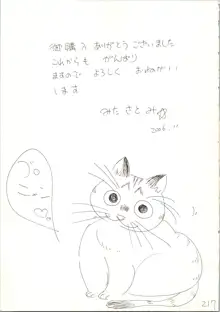 御購入ありがとうございました
これからも がんばり
ますので よろしく おねがい
します
みた さとみ
217